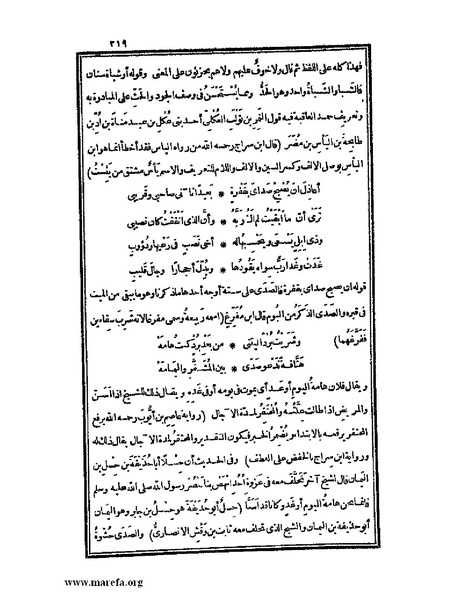 ٢١٩
فهذا كله على اللفظ ثم قال ولا خوف عليهم ولا هم يحزنون على المعنى وقوله أو شباة سنان
فالشبا والشباة واحد وهو الحد ومما يستحسن في وصف الجود والحث على المبادرة به
وتعريف حمد العاقبة فيه قول النمر بن تولب العكلي أحد بني عكل بن عبد مناة بن أد بن
طابخة بن الياس بن مضر (قال ابن سراج رحمه الله من رواه الياس فقد أخطأ انما هو ابن
الياس بوصل الالف وكسر السين والالف واللام للتعريف والاسم يأس مشتق من يئست)
أعاذل ان يصبح صداي بقفرة * بعيدا نآني صاحبي وقريبي
ترى أن ما أبقيت لم أك ربه * وأن الذي أنفقت كان نصيبي
وذي ابل يسعى ويحسبها له * أخي نصب في رعيها ودؤوب
غدت وغدا رب سواه يقودها * وبدل أحجارا وجال قليب
قوله ان يصبح صداي بقفرة فالصدى على ستة أوجه أحدها ماذكرنا وهو ما يبقى من الميت
في قبره والصدى الذكر من البوم قال ابن مفرغ (اسمه ربيعة وسمي مفرغا لانه شرب سقاء لبن
ففرغها)
وشريت بردا ليتني * من بعد برد كنت هامه
هتافة تدعو صدى * بين المشقر واليمامه
ويقال فلان هامة اليوم أو غد أي يموت في يومه أو في غده ويقال ذلك للشيخ اذا أسن
والمريض اذا طالت علته والمحتقر لمدة الآجال (رواية عاصم بن أيوب رحمه الله برفع
المحتقر يرفعه بالابتداء ويضمر الخبر فيكون التقدير والمحتقر لمدة الآجال يقال ذلك له
ورواية ابن سراج بالخفض على العطف) وفي الحديث أن حسلا أبا حذيفة بن حسل بن
اليمان قال لشيخ آخر تخلف معه في غزوة أحد انهض بنا ننصر رسول الله صلى الله عليه وسلم
فانما نحن هامة اليوم أو غد وكانا قد أسنا (حسل أبو حذيفة هو حسل بن جابر وهو اليمان
أبو حذيفة بن اليمان والشيخ الذي تخلف معه ثابت بن وقش الانصاري) والصدى حشوة
www.marefa.org